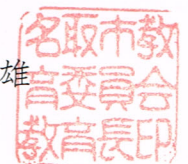 雄
名取市教
育委員会
教育長印